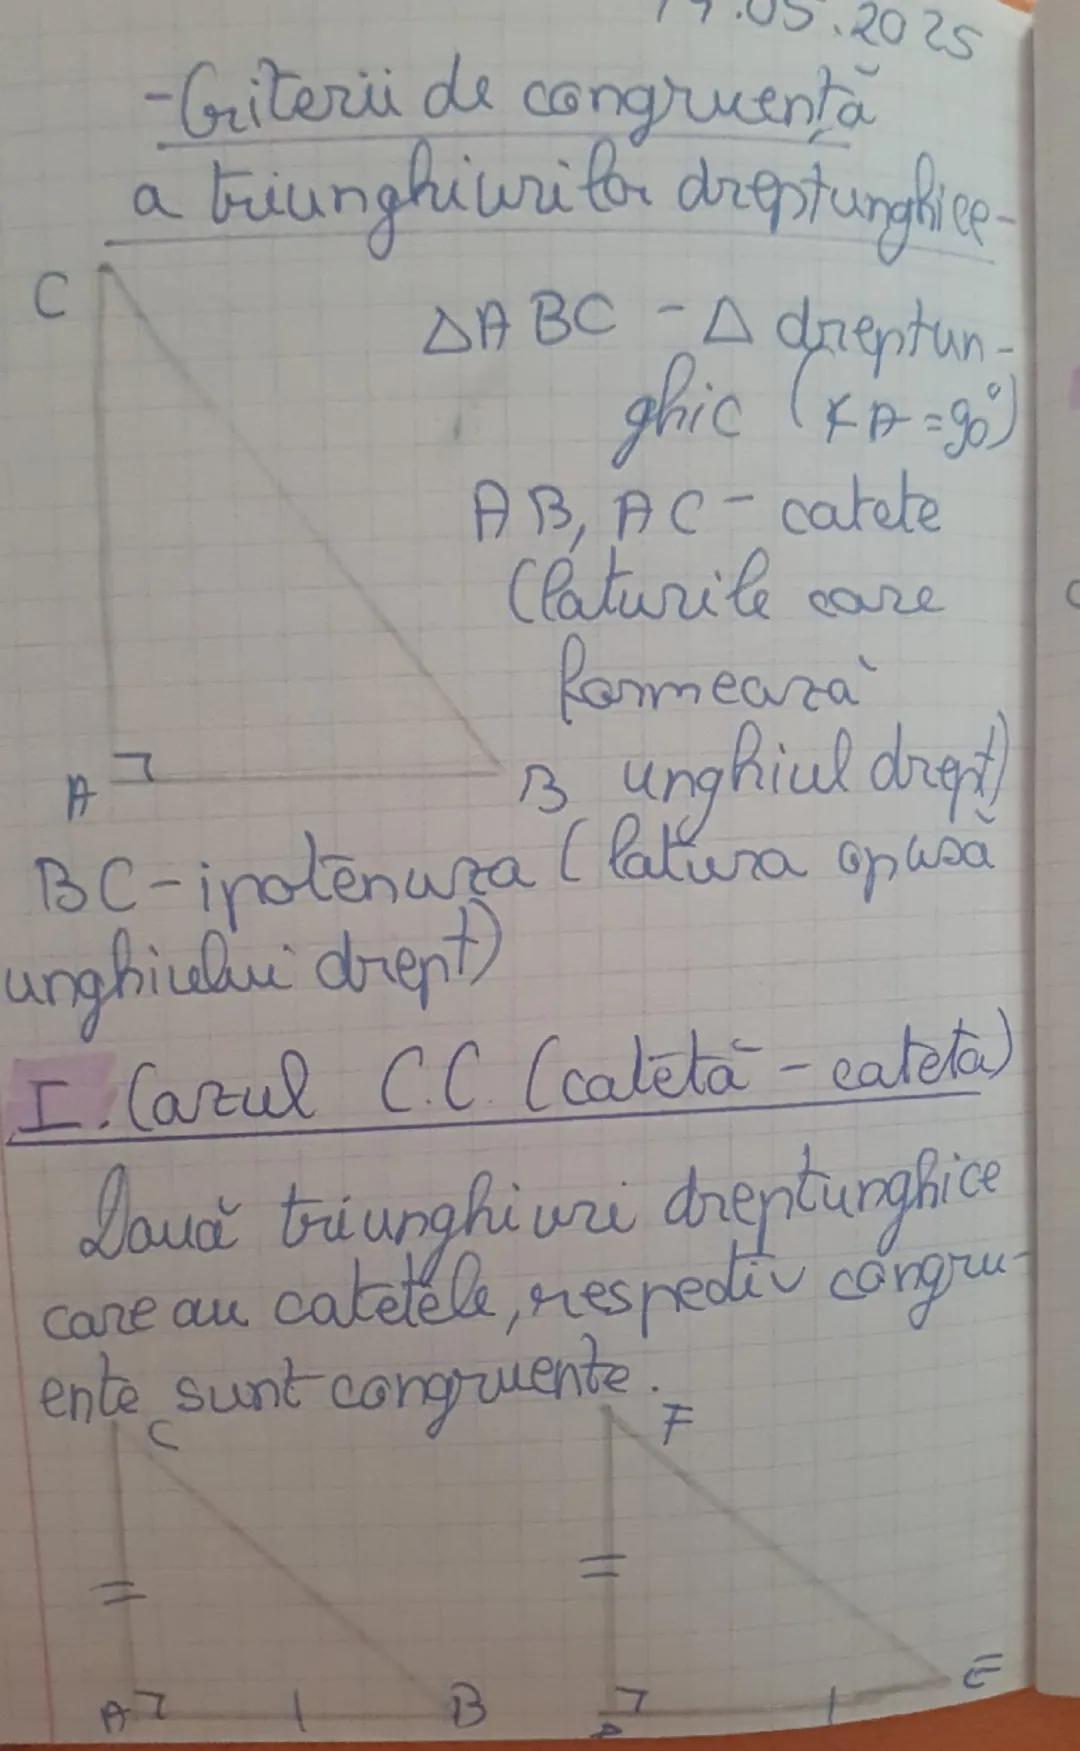 .05.2025
-Criterii de congruență
a triunghiurilor dreptunghice-
C
△ABC - △ dreptun-
ghic (∢A=90°)
AB, AC - catete
(laturile care
formează
A B unghiul drept)
BC - ipotenuza (latura opusă
unghiului drept)
I. Cazul C.C. (catetă - catetă)
Două triunghiuri dreptunghice
care au catetele, respectiv congru-
ente sunt congruente.
C F
A B E